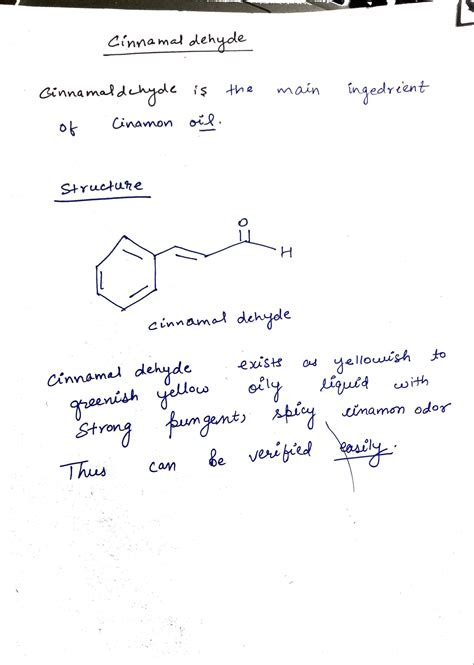 Cinnamal dehyde
Cinnamaldehyde is the main ingedrient
of Cinamon oil.
Structure
O
H
cinnamal dehyde
cinnamal dehyde exists as yellowish to
greenish yellow oily liquid with
strong pungent, spicy cinamon odor
Thus can be verified easily.